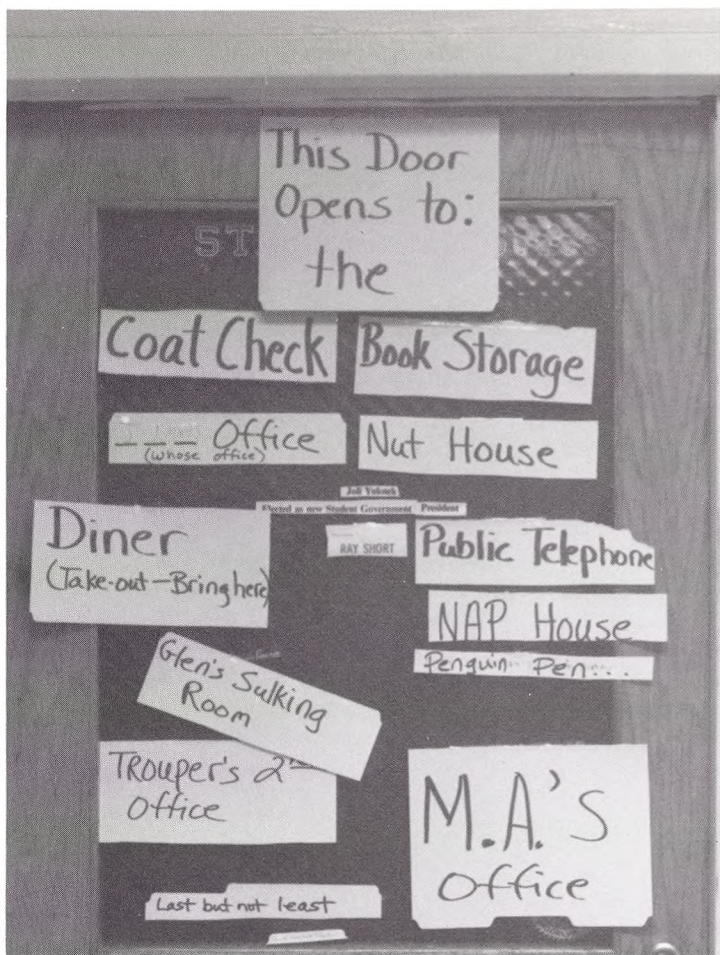 This Door
Opens to:
the
ST
Coat Check
Book Storage
___ Office
(whose office)
Nut House
Joli Yoksek
Elected as new Student Government President
Diner
(Take-out-Bring here)
RAY SHORT
Public Telephone
NAP House
Penguin Pen...
Glen's Sulking
Room
TROUper's 2nd
Office
M.A.'s
Office
Last but not least